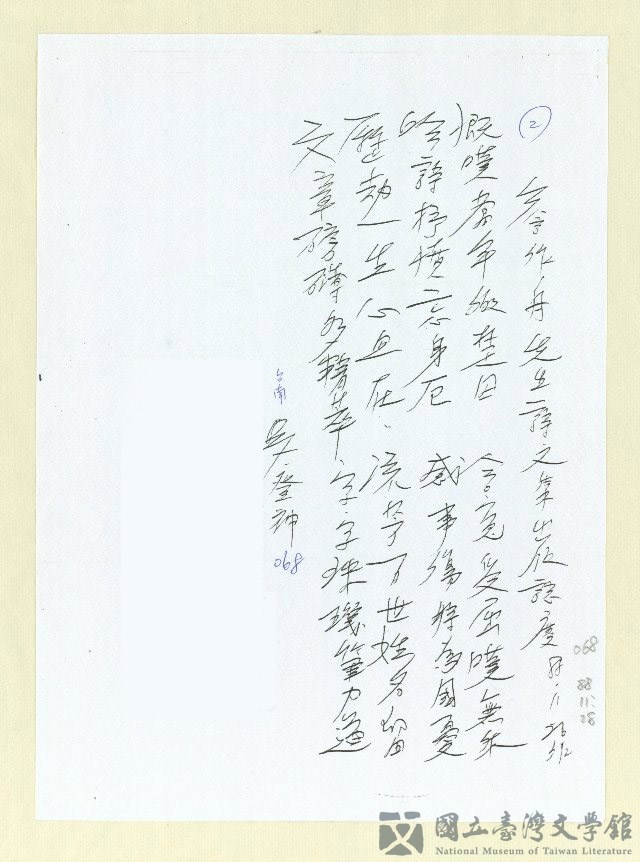 ②
李作舟先生詩文集出版誌慶 88.11.28
慨嘆當年縲楚囚 含冤受屈嘆無休
吟詩抒憤忘身厄 感事傷時為國憂
歷劫一生心血在 流芳百世姓名留
文章磅礴多精萃 字字珠璣筆力遒
台南
吳登神
068
068
88.
11.
28
國立臺灣文學館
National Museum of Taiwan Literature